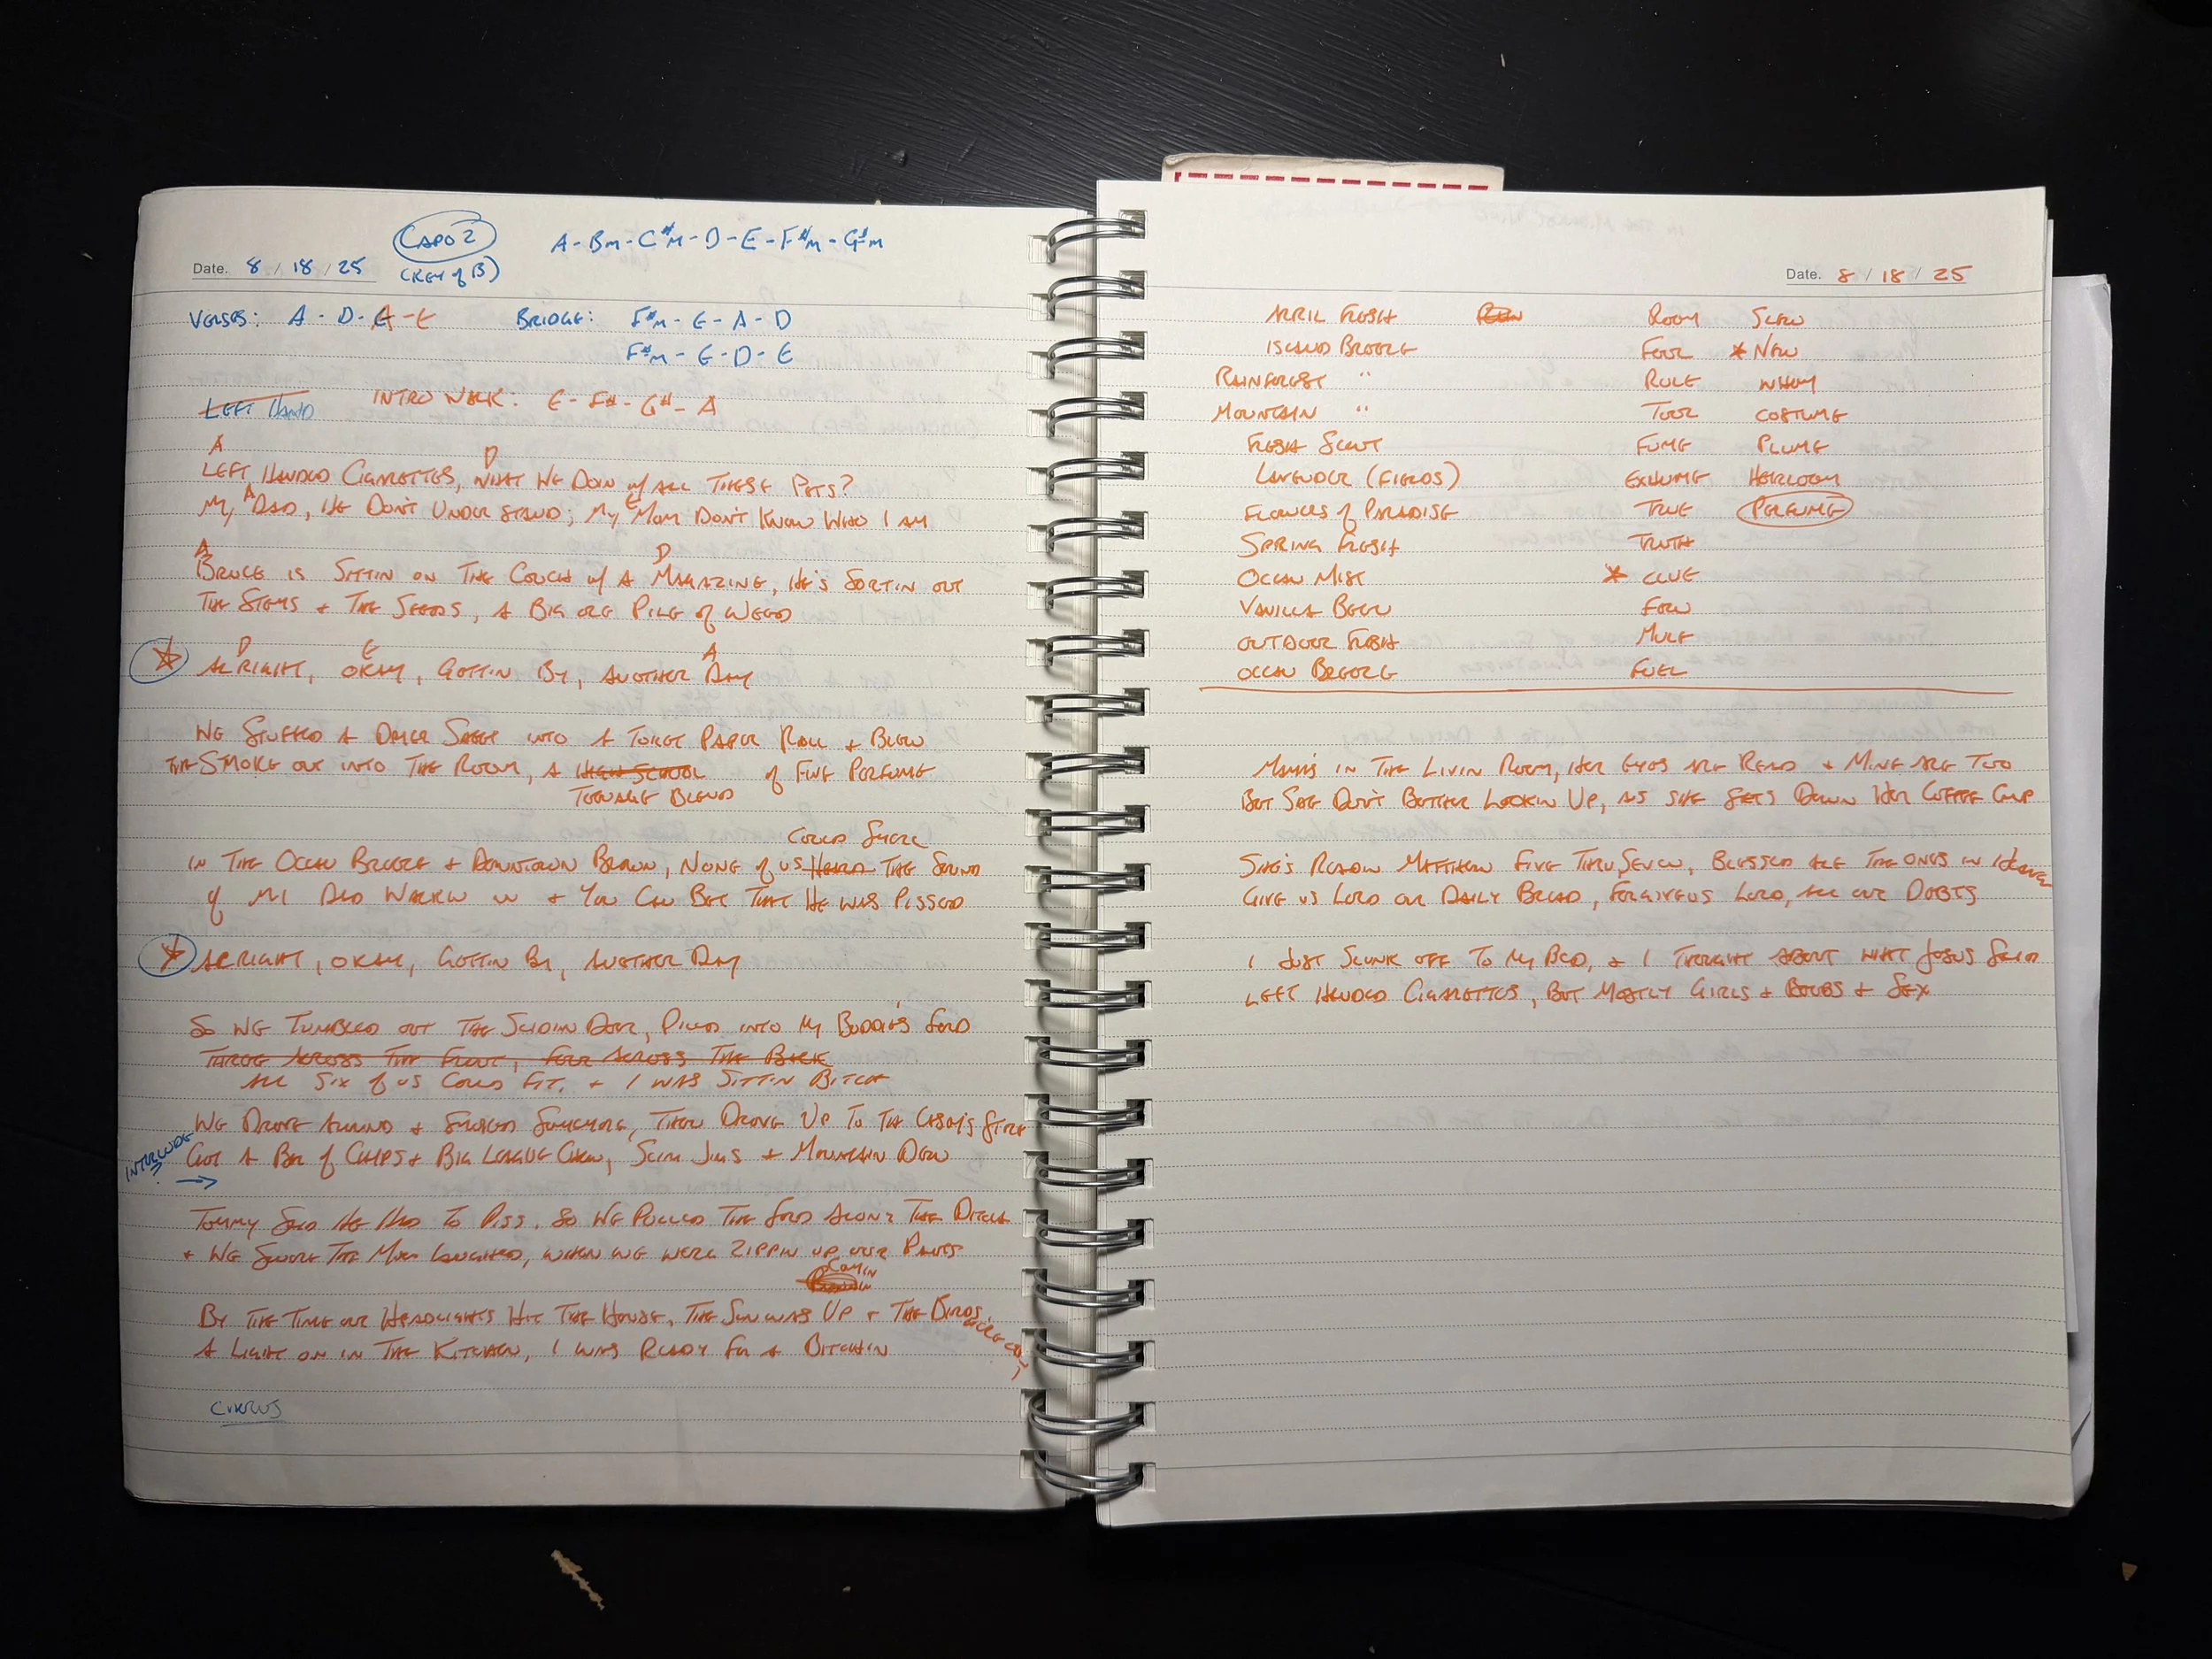 CAPO 2
A - Bm - C#m - D - E - F#m - G#m
Date. 8 / 18 / 25
(KEY of B)
VERSES: A - D - A - E
BRIDGE: F#m - E - A - D
F#m - E - D - E
LEFT HAND
INTRO WALK: E - F# - G# - A
A D
LEFT HANDED CIGARETTES, WHAT WE DOIN w/ ALL THESE PETS?
A E
MY DAD, HE DON'T UNDERSTAND; MY MOM DON'T KNOW WHO I AM
A D
BRUCE IS SITTIN ON THE COUCH w/ A MAGAZINE, HE'S SORTIN OUT
THE STEMS + THE SEEDS, A BIG OLE PILE of WEED
D E A
ALRIGHT, OKAY, GETTIN BY, ANOTHER DAY
WE STUFFED A DRYER SHEET INTO A TOILET PAPER ROLL + BLEW
THE SMOKE OUT INTO THE ROOM, A HIGH SCHOOL of FINE PERFUME
TEENAGE BLEND
COULD SWEAR
IN THE OCEAN BREEZE + DOWNTOWN BROWN, NONE of US HEARD THE SOUND
of MY DAD WALKIN IN + YOU CAN BET THAT HE WAS PISSED
ALRIGHT, OKAY, GETTIN BY, ANOTHER DAY
SO WE TUMBLED OUT THE SLIDIN DOOR, PILED INTO MY BUDDIE'S FORD
THREE ACROSS THE FRONT, FOUR ACROSS THE BACK
ALL SIX of US COULD FIT, + I WAS SITTIN BITCH
WE DROVE AROUND + SMOKED SOMEMORE, THEN DROVE UP TO THE CASEY'S STORE
INTERLUDE?
GOT A BAG of CHIPS + BIG LEAGUE CHEW, SLIM JIMS + MOUNTAIN DEW
TOMMY SAID HE HAD TO PISS, SO WE PULLED THE FORD ALONG THE DITCH
+ WE SWORE THE MOON LAUGHED, WHEN WE WERE ZIPPIN UP OUR PANTS
BY THE TIME OUR HEADLIGHTS HIT THE HOUSE, THE SUN WAS UP + THE BIRDS
A LIGHT ON IN THE KITCHEN, I WAS READY for A BITCHIN
CHORUS
Date. 8 / 18 / 25
APRIL FRESH ROOM SLEW
ISLAND BREEZE FOOL * NEW
RAINFOREST " RULE WHOM
MOUNTAIN " TOOL COSTUME
FRESH SCENT FUME PLUME
LAVENDER (FIELDS) EXHUME HEIRLOOM
FLOWERS of PARADISE TRUE PERFUME
SPRING FRESH TRUTH
OCEAN MIST * CLUE
VANILLA BEAN FEW
OUTDOOR FRESH MULE
OCEAN BREEZE FUEL
MAMA'S IN THE LIVIN ROOM, HER EYES ARE READ + MINE ARE TWO
BUT SHE DON'T BOTHER LOOKIN UP, AS SHE SETS DOWN HER COFFEE CUP
SHE'S READIN MATTHEW FIVE THRU SEVEN, BLESSED ARE THE ONES IN HEAVEN
GIVE US LORD OUR DAILY BREAD, FORGIVE US LORD, ALL OUR DEBTS
I JUST SLUNK OFF TO MY BED, + I THOUGHT ABOUT WHAT JESUS SAID
LEFT HANDED CIGARETTES, BUT MOSTLY GIRLS + BOOBS + SEX